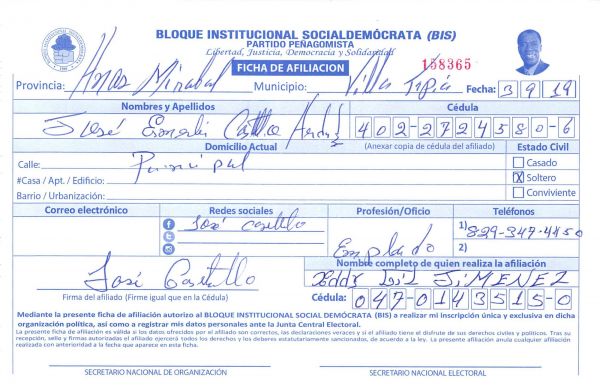 BLOQUE INSTITUCIONAL SOCIALDEMÓCRATA (BIS)
PARTIDO PEÑAGOMISTA
Libertad, Justicia, Democracia y Solidaridad
FICHA DE AFILIACION
158365
Provincia: Hnas Mirabal Municipio: Villa Tapia Fecha: 3 9 19
Nombres y Apellidos Cédula
José Castillo 402-2724580-6
Domicilio Actual (Anexar copia de cédula del afiliado) Estado Civil
Calle: Principal Casado
#Casa / Apt. / Edificio: X Soltero
Barrio / Urbanización: Conviviente
Correo electrónico Redes sociales Profesión/Oficio Teléfonos
José castillo Empleado 1) 829-347-4450
2)
José Castillo
Nombre completo de quien realiza la afiliación
JiMENEZ
Firma del afiliado (Firme igual que en la Cédula) Cédula: 047-0143515-0
Mediante la presente ficha de afiliación autorizo al BLOQUE INSTITUCIONAL SOCIAL DEMÓCRATA (BIS) a realizar mi inscripción única y exclusiva en dicha
organización política, así como a registrar mis datos personales ante la Junta Central Electoral.
La presente ficha de afiliación es válida a los datos ofrecidos por el afiliado son correctos, las declaraciones veraces y si el afiliado tiene el disfrute de sus derechos civiles y políticos. Tras su
recepción, sello y firmas autorizadas el afiliado ejercerá todos los derechos y los deberes estatutariamente sancionados, de acuerdo a la ley. La presente afiliación anula cualquier afiliación
realizada con anterioridad a la fecha que aparece en esta ficha.
SECRETARIO NACIONAL DE ORGANIZACIÓN SECRETARIO NACIONAL ELECTORAL